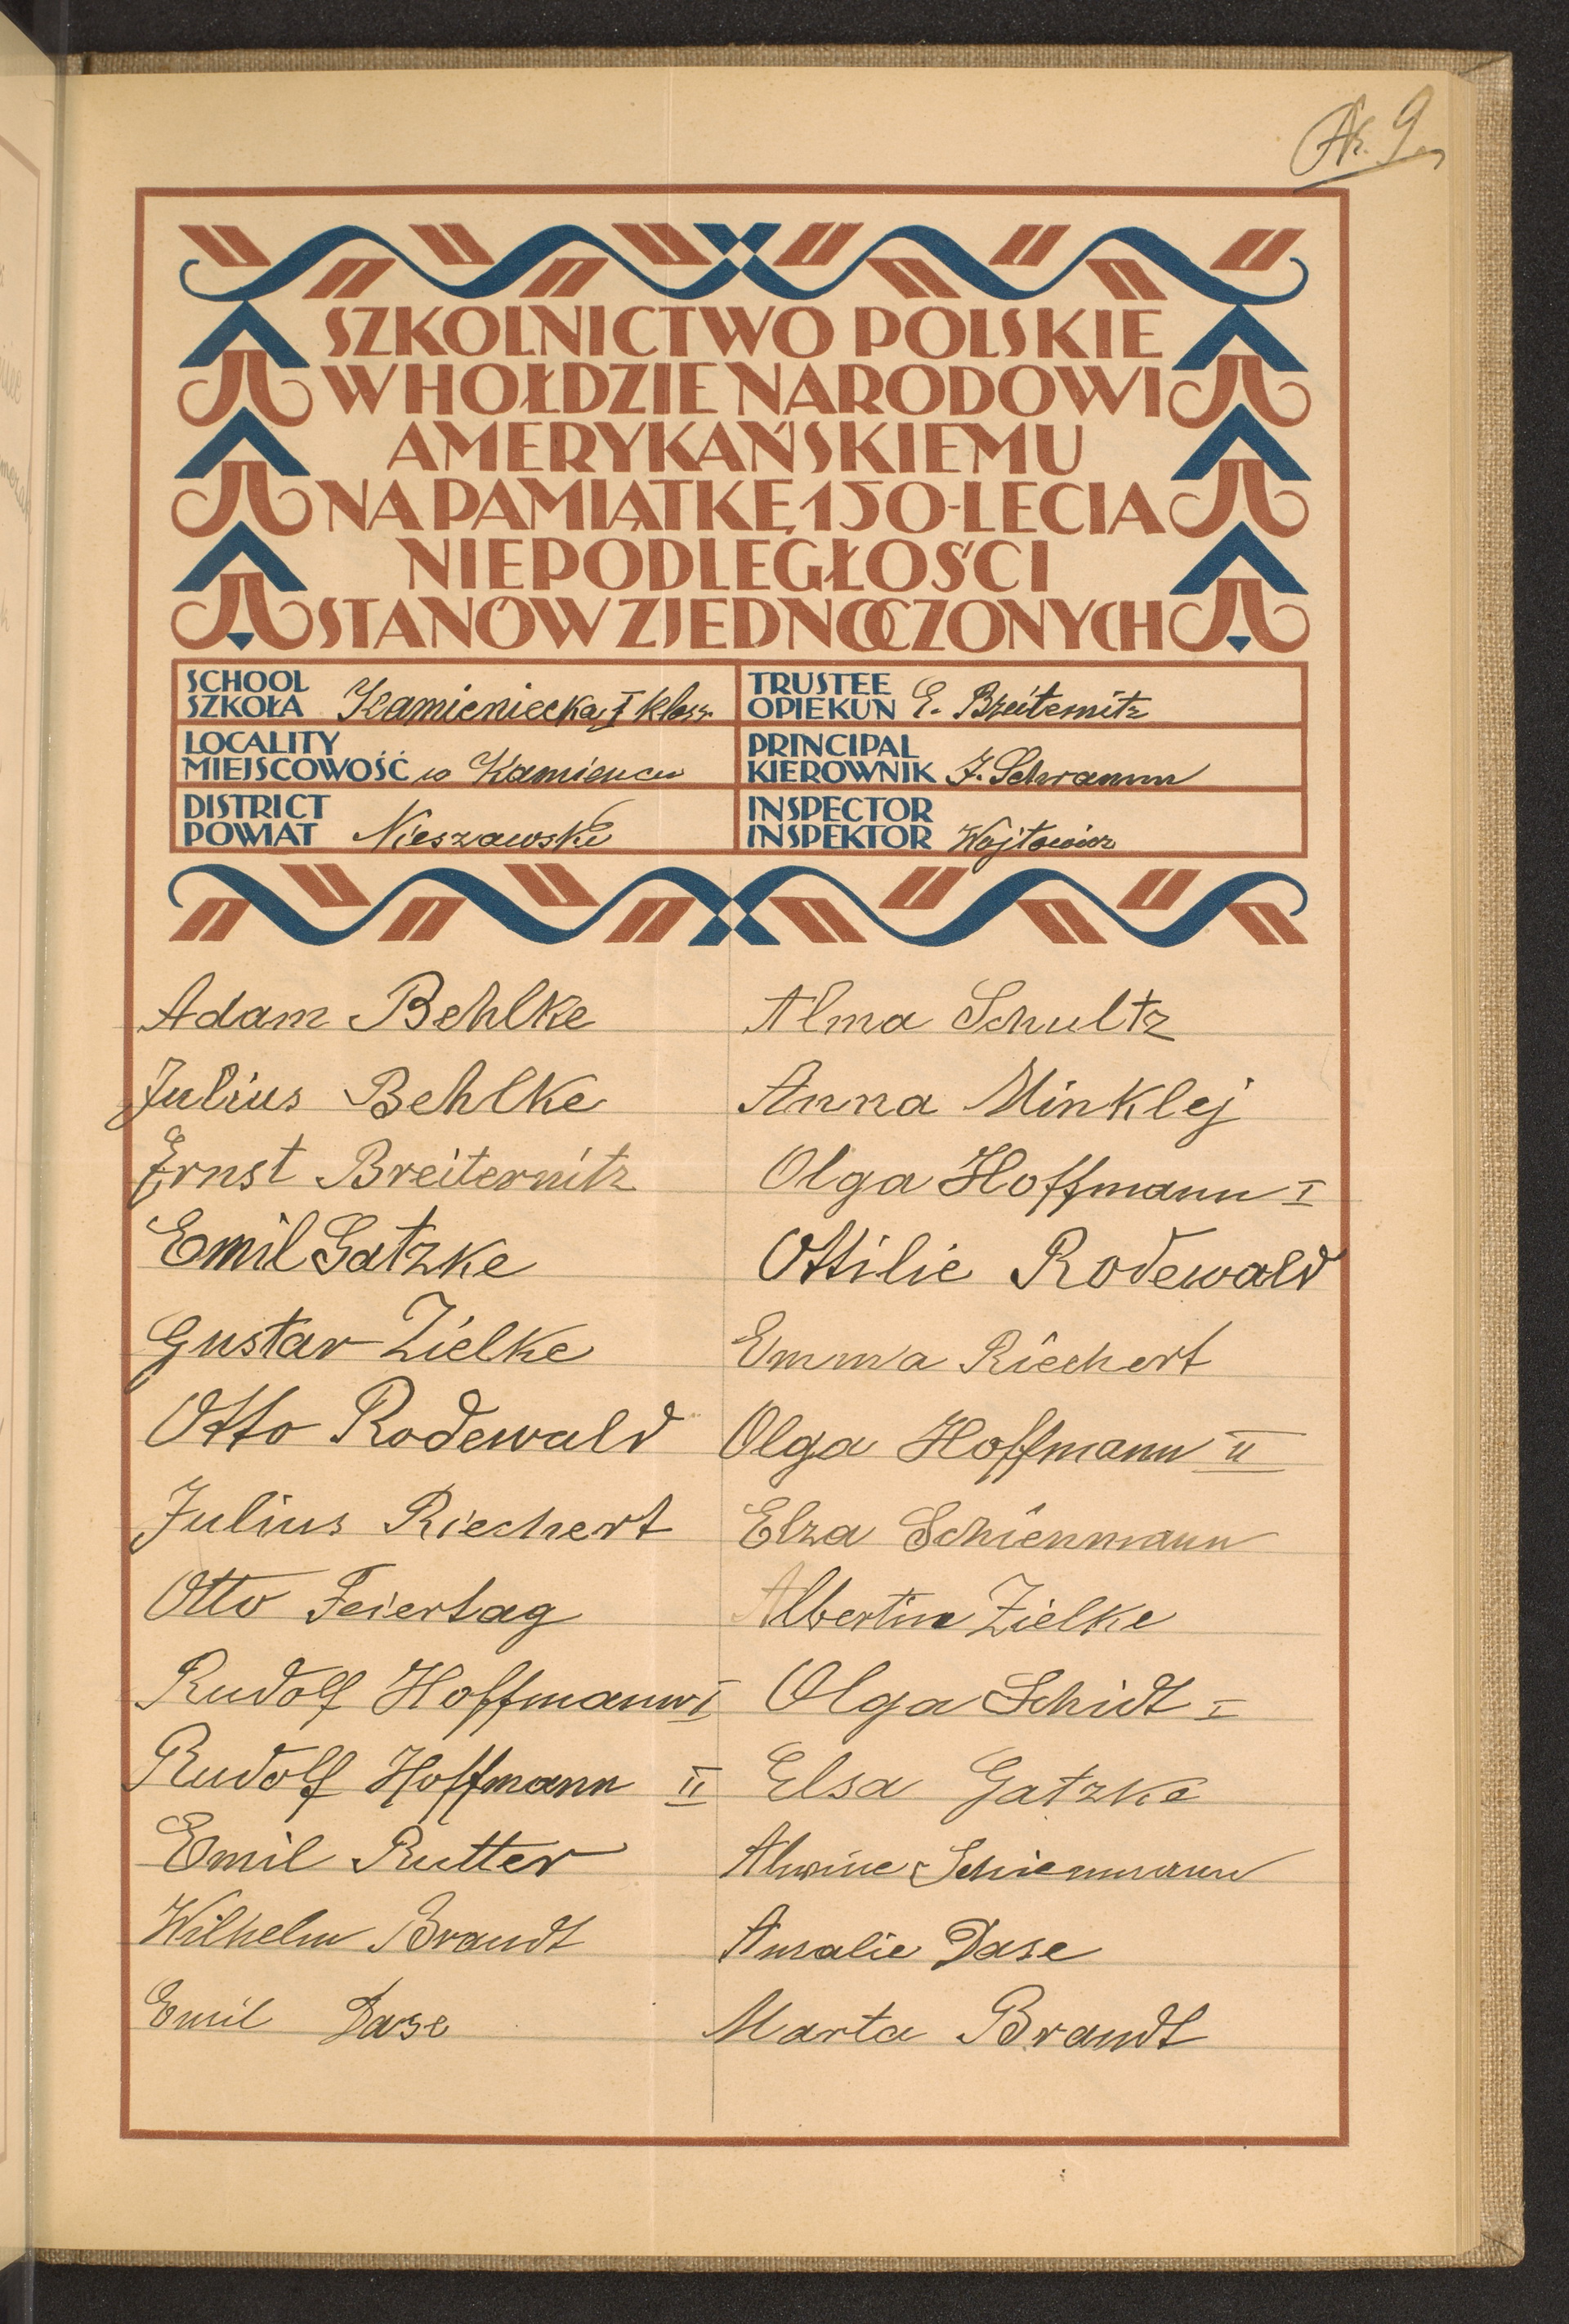 Ak. 9
SZKOLNICTWO POLSKIE
W HOŁDZIE NARODOWI
AMERYKAŃSKIEMU
NA PAMIĄTKĘ 150-LECIA
NIEPODLEGŁOŚCI
STANÓW ZJEDNOCZONYCH
SCHOOL
SZKOŁA Kamieniecka I klass.
TRUSTEE
OPIEKUN E. Breiternitz
LOCALITY
MIEJSCOWOŚĆ w Kamieńcu
PRINCIPAL
KIEROWNIK J. Schramm
DISTRICT
POWIAT Nieszawski
INSPECTOR
INSPEKTOR Wojtowicz
Adam Behlke
Julius Behlke
Ernst Breiternitz
Emil Gatzke
Gustav Zielke
Otto Rodewald
Julius Riechert
Otto Feiertag
Rudolf Hoffmann I
Rudolf Hoffmann II
Emil Rutter
Wilhelm Brandt
Emil Dase
Alma Schultz
Anna Minklej
Olga Hoffmann I
Ottilie Rodewald
Emma Riechert
Olga Hoffmann II
Elza Schienmann
Albertine Zielke
Olga Schidt I
Elsa Gatzke
Alwine Schienmann
Amalie Dase
Marta Brandt